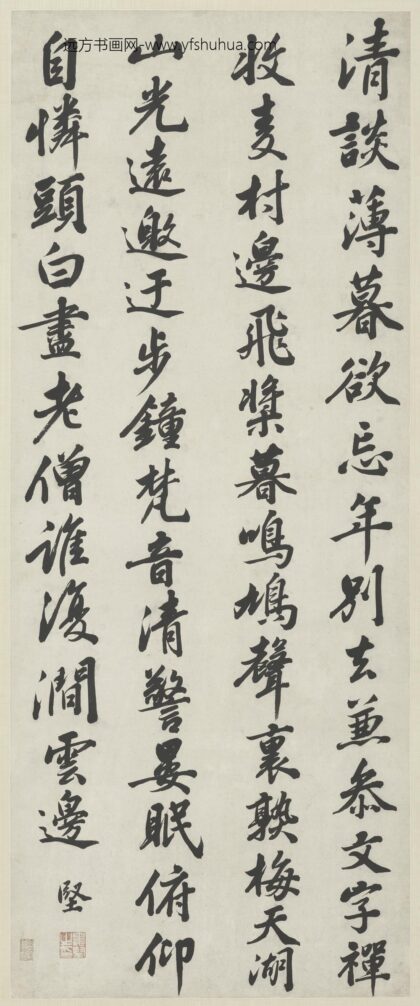 远方书画网-www.yfshuhua.com
清談薄暮欲忘年別去兼參文字禪
收麦村邊飛槳暮鳴鳩聲裏熟梅天湖
山光遠邀迂步鐘梵音清警晏眠俯仰
自憐頭白盡老僧誰復澗雲邊
堅